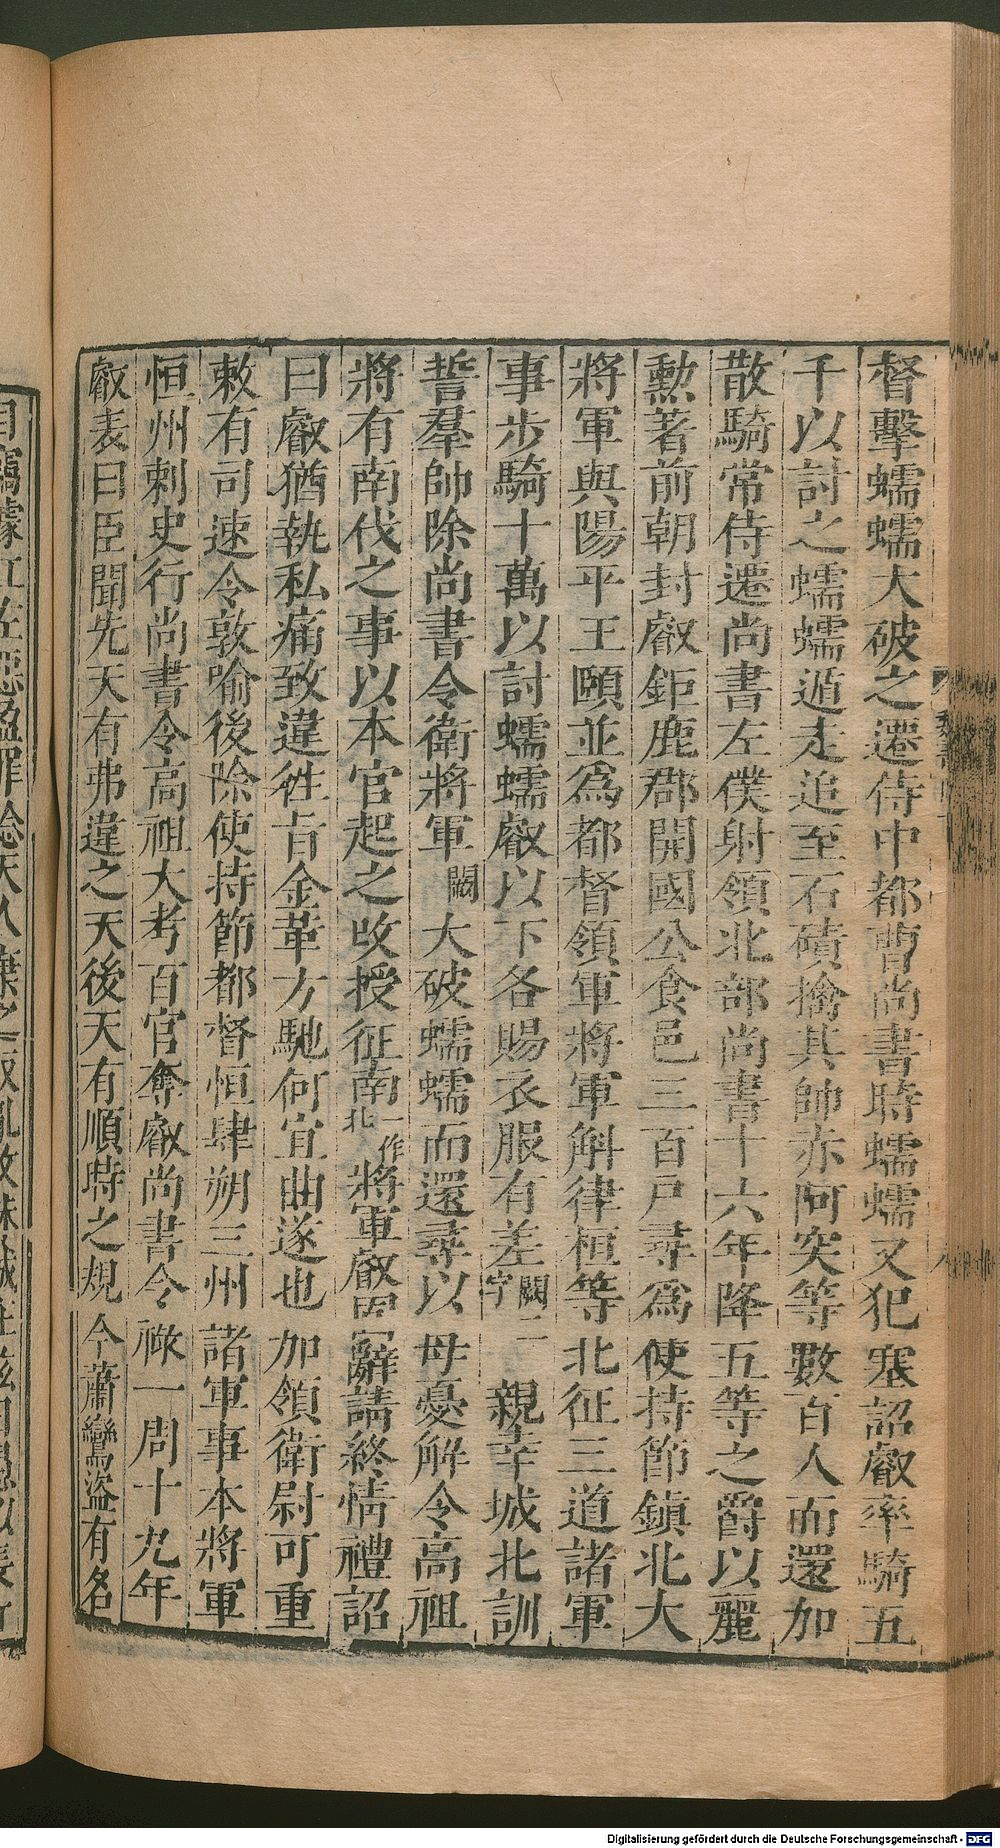 督擊蠕蠕大破之遷侍中都曹尚書時蠕蠕又犯塞詔叡率騎五
千以討之蠕蠕遁走追至石磧擒其帥赤阿突等數百人而還加
散騎常侍遷尚書左僕射領北部尚書十六年降五等之爵以麗
勲著前朝封叡鉅鹿郡開國公食邑三百戸尋爲使持節鎮北大
將軍與陽平王頤並爲都督領軍將軍斛律桓等北征三道諸軍
事步騎十萬以討蠕蠕叡以下各賜衣服有差闕二字親幸城北訓
誓羣帥除尚書令衛將軍闕大破蠕蠕而還尋以母憂解令高祖
將有南伐之事以本官起之攺授征南一作北將軍叡固辭請終情禮詔
曰叡猶執私痛致違徃旨金革方馳何宜曲遂也加領衛尉可重
敕有司速令敦喻後除使持節都督恒肆朔三州諸軍事本將軍
恒州刺史行尚書令高祖大考百官奪叡尚書令祿一周十九年
叡表曰臣聞先天有弗違之天後天有順時之規今蕭鸞盜有名
Digitalisierung gefördert durch die Deutsche Forschungsgemeinschaft - DFG